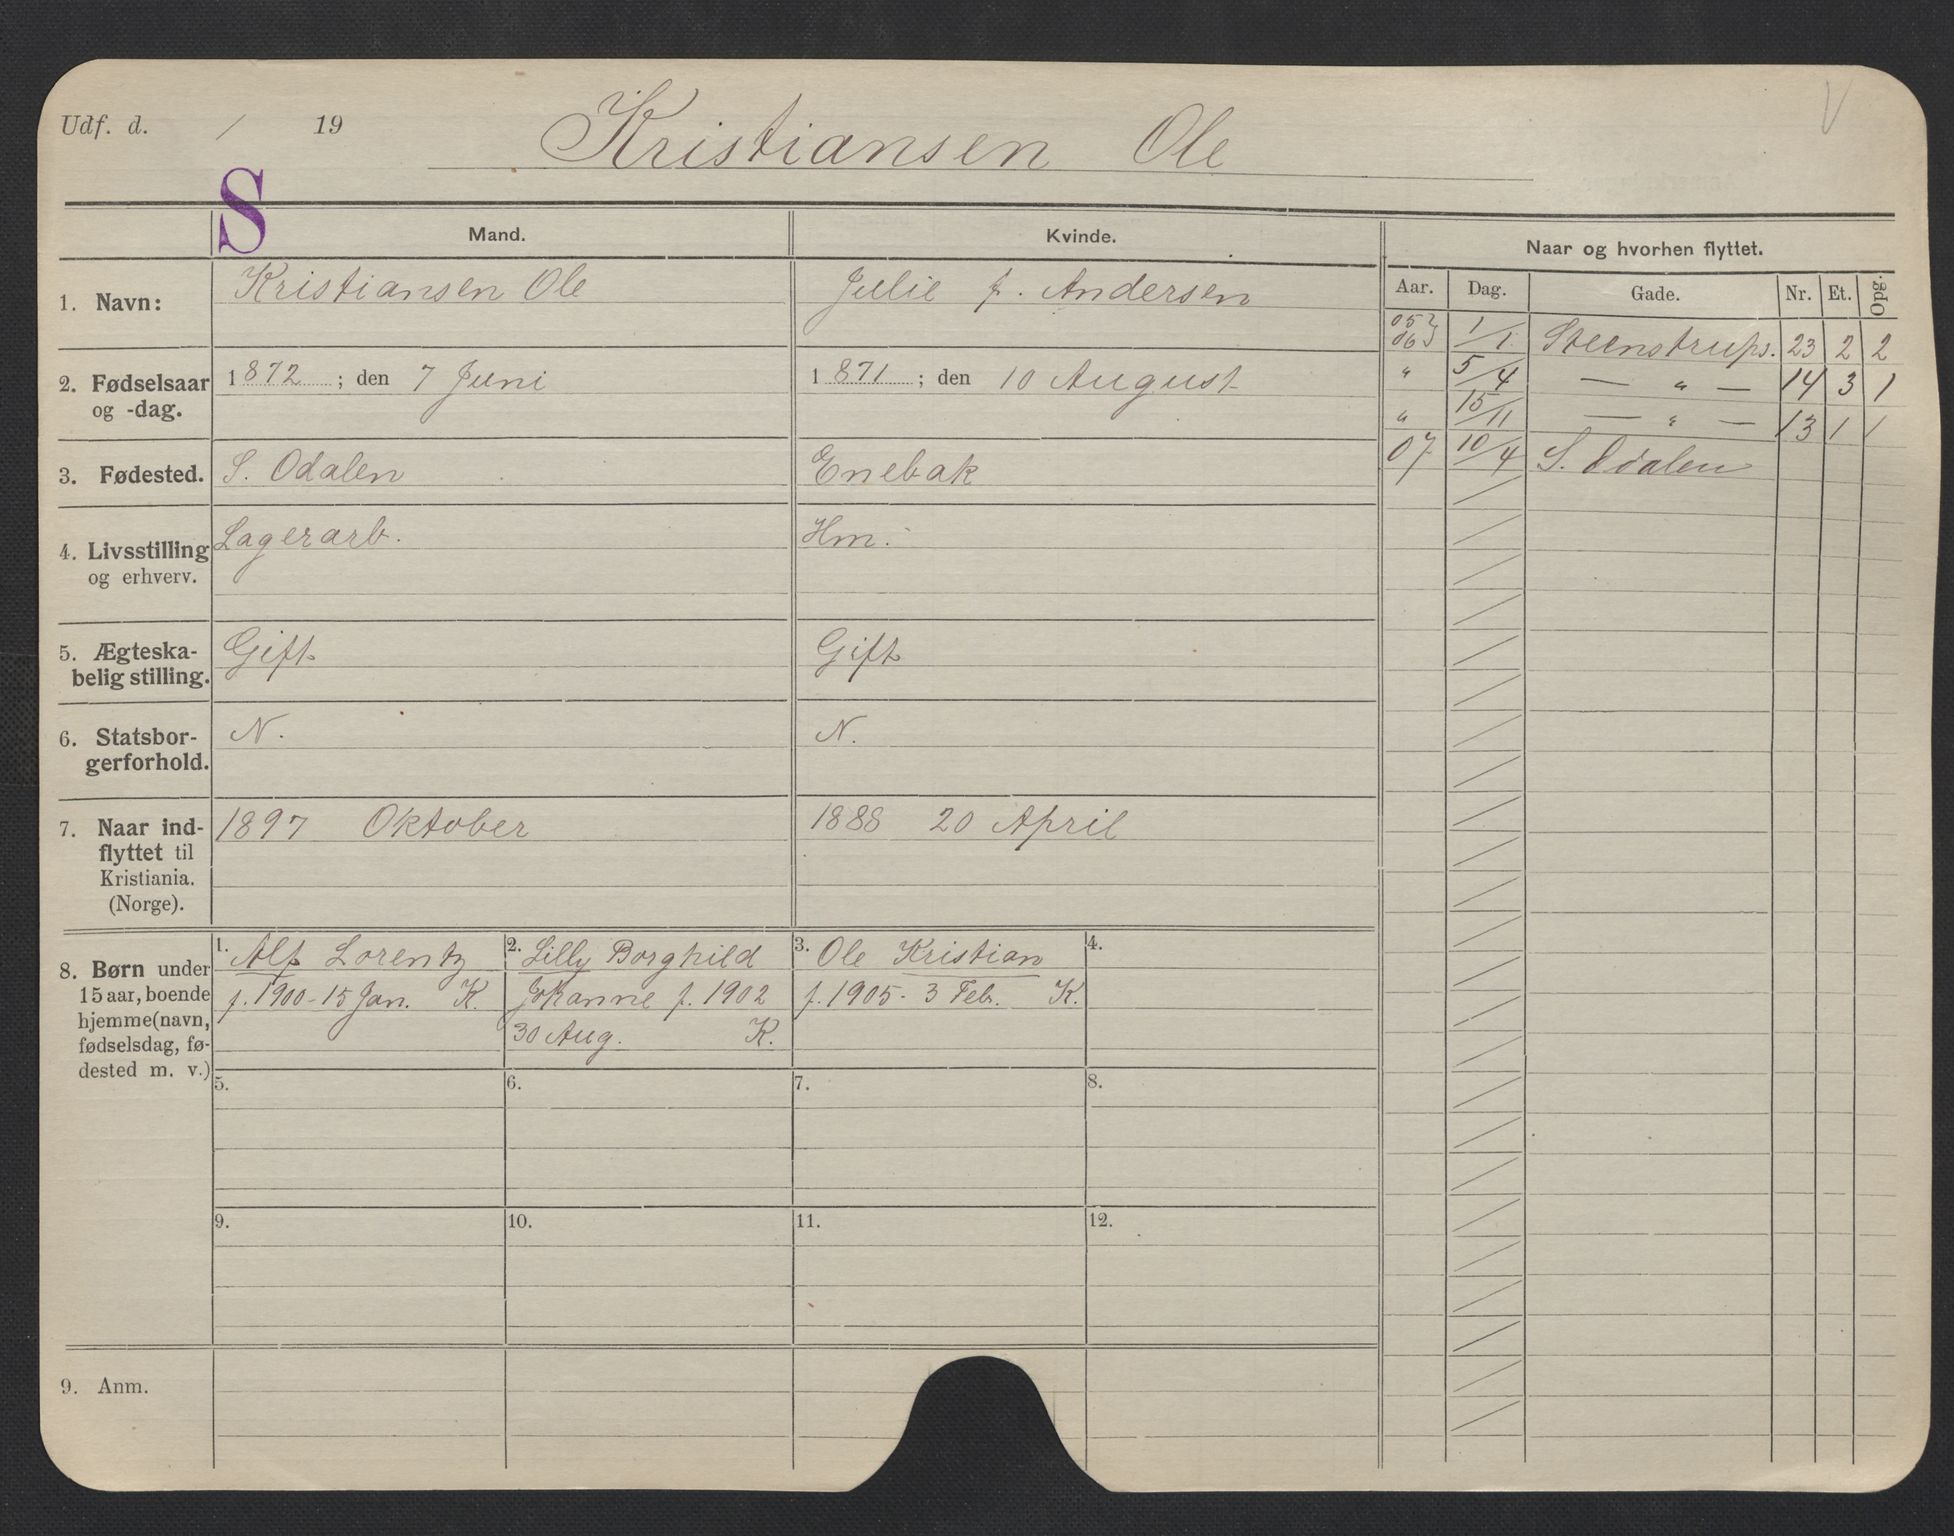 Udf. d. / 19
Kristiansen Ole
V
S
Mand.
Kvinde.
Naar og hvorhen flyttet.
Aar. Dag. Gade. Nr. Et. Opg.
1. Navn:
Kristiansen Ole
Julie f. Andersen
2. Fødselsaar
og -dag.
1872; den 7 Juni
1871; den 10 August
3. Fødested.
S. Odalen
Enebak
4. Livsstilling
og erhverv.
Lagerarb.
Hm.
5. Ægteska-
belig stilling.
Gift
Gift
6. Statsbor-
gerforhold.
N.
N.
7. Naar ind-
flyttet til
Kristiania.
(Norge).
1897 Oktober
1888 20 April
8. Børn under
15 aar, boende
hjemme (navn,
fødselsdag, fø-
dested m. v.)
1. Alf Lorentz
f. 1900 - 15 Jan. K.
2. Lilly Borghild
Johanne f. 1902
30 Aug. K.
3. Ole Kristian
f. 1905 - 3 Febr. K.
4.
5.
6.
7.
8.
9.
10.
11.
12.
9. Anm.
05
06 1/1 Steenstrups. 23 2 2
" 5/4 — " — 14 3 1
" 15/11 — " — 13 1 1
07 10/4 S. Odalen